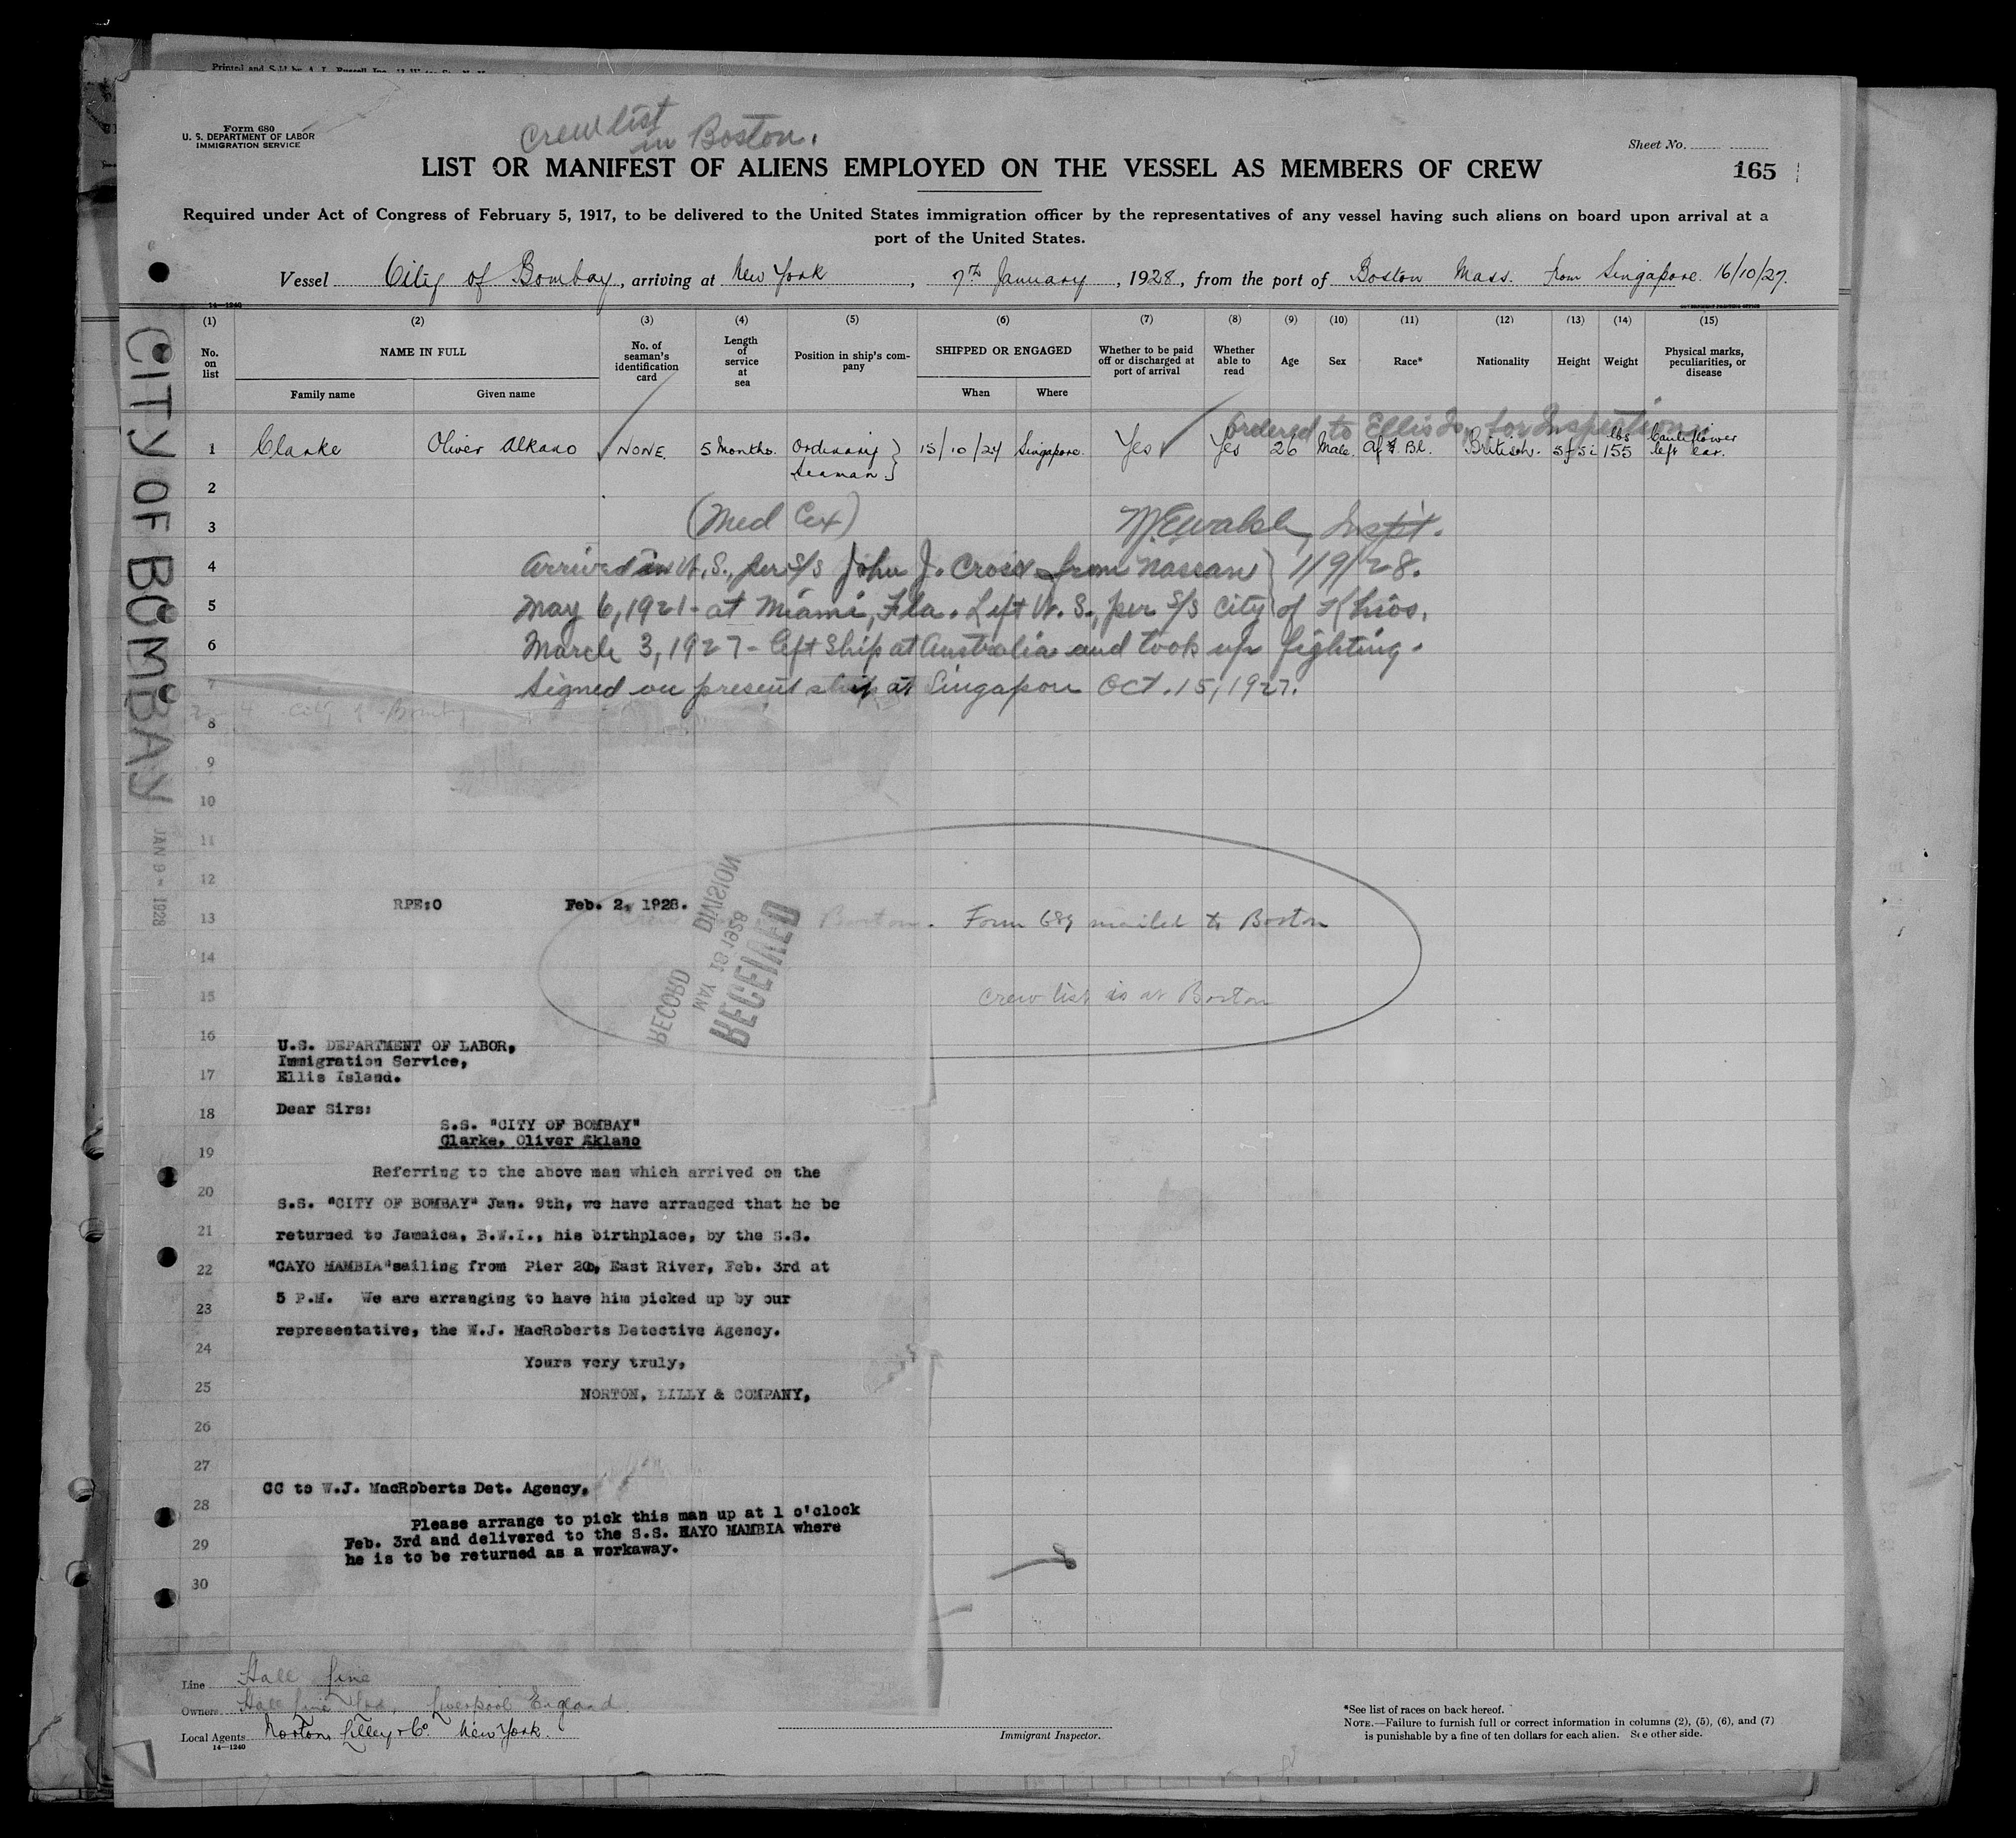 Printed and Sold by
Crew list
in Boston.
Form 680
U. S. DEPARTMENT OF LABOR
IMMIGRATION SERVICE
Sheet No.
LIST OR MANIFEST OF ALIENS EMPLOYED ON THE VESSEL AS MEMBERS OF CREW
165
Required under Act of Congress of February 5, 1917, to be delivered to the United States immigration officer by the representatives of any vessel having such aliens on board upon arrival at a
port of the United States.
Vessel City of Bombay, arriving at New York, 7th January, 1928, from the port of Boston Mass. from Singapore. 16/10/27.
14—1240
GOVERNMENT PRINTING OFFICE
CITY OF BOMBAY
JAN 9 - 1928
(1) (2) (3) (4) (5) (6) (7) (8) (9) (10) (11) (12) (13) (14) (15)
No. on list
NAME IN FULL
Family name Given name
No. of seaman's identification card
Length of service at sea
Position in ship's company
SHIPPED OR ENGAGED
When Where
Whether to be paid off or discharged at port of arrival
Whether able to read
Age
Sex
Race*
Nationality
Height
Weight
Physical marks, peculiarities, or disease
Ordered to Ellis Is. for Inspection
1 Clarke Oliver NONE. 5 Months. Ordinary Seaman } 15/10/27 Singapore. Yes Yes 26 Male. Af. Bl. British. 5f 5i lbs 155 Cauliflower left ear.
2
3 (Med Cex) W.E. Walsh, Inspt.
4 Arrived in U.S., per S/S John J. Croix from Nassau } 1/9/28.
5 May 6, 1921 - at Miami, Fla. Left U.S., per S/S City of Khios.
6 March 3, 1927 - left ship at Australia and took up fighting.
7 Signed on present ship at Singapore Oct. 15, 1927.
City of Bombay
8
9
10
11
12
13
14
15
16
17
18
19
20
21
22
23
24
25
26
27
28
29
30
RPE:O Feb. 2, 1928.
RECORD DIVISION
MAY 18 1928
RECEIVED
Boston. Form 689 mailed to Boston
Crew list is at Boston
U.S. DEPARTMENT OF LABOR,
Immigration Service,
Ellis Island.
Dear Sirs:
S.S. "CITY OF BOMBAY"
Clarke, Oliver Aklano
Referring to the above man which arrived on the
S.S. "CITY OF BOMBAY" Jan. 9th, we have arranged that he be
returned to Jamaica, B.W.I., his birthplace, by the S.S.
"CAYO MAMBIA" sailing from Pier 20, East River, Feb. 3rd at
5 P.M. We are arranging to have him picked up by our
representative, the W.J. MacRoberts Detective Agency.
Yours very truly,
NORTON, LILLY & COMPANY,
CC to W.J. MacRoberts Det. Agency,
Please arrange to pick this man up at 1 o'clock
Feb. 3rd and delivered to the S.S. HAYO MAMBIA where
he is to be returned as a workaway.
Line Hall Line
Owners Hall Line Ltd, Liverpool England
Local Agents Norton Lilley & Co. New York.
14—1240
Immigrant Inspector.
*See list of races on back hereof.
NOTE.—Failure to furnish full or correct information in columns (2), (5), (6), and (7)
is punishable by a fine of ten dollars for each alien. See other side.